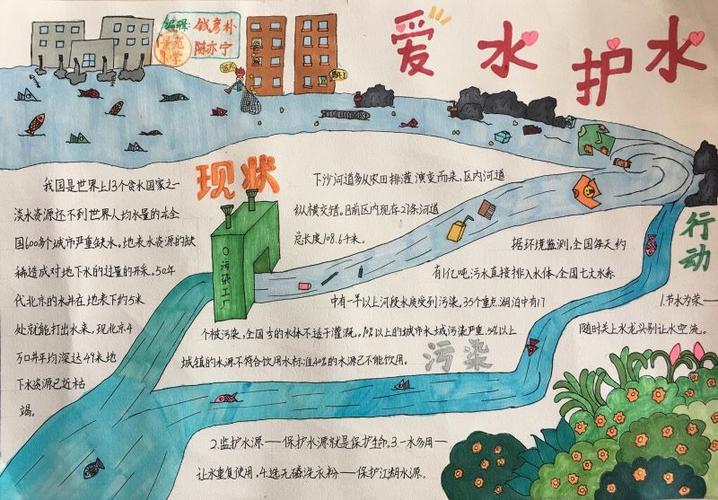 爱水护水
编辑:钱彦朴
陈亦宁
现状
我国是世界上13个贫水国家之一
淡水资源还不到世界人均水量的
国600多个城市严重缺水,地表水资源的缺
稀造成对地下水的过量的开采,50年
代北京的水井在地表下约5米
处就能打出水来,现北京4
万口井平均深达49米地
下水资源已近枯
竭。
下沙河道多从农田排灌演变而来,区内河道
纵横交错。目前区内现存27条河道
总长度108.64米。
污染工厂
据环境监测,全国每天约
有1亿吨污水直接排入水体,全国七大水系
中有一半以上河段水质受到污染,35个重点湖泊中有17
个被污染,全国 的水体不适于灌溉。 以上的城市水域污染严重, 以上
城镇的水源不符合饮用水标准40%的水源已不能饮用。
污染
行动
1.节水为荣—
随时关上水龙头别让水空流。
2.监护水源——保护水源就是保护生命。3.一水多用—
让水重复使用。4.选无磷洗衣粉——保护江湖水源。